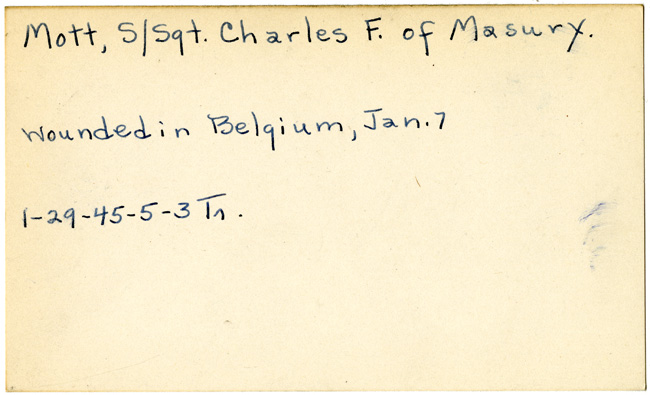 Mott, S/Sgt. Charles F. of Masury.
Wounded in Belgium, Jan. 7
1-29-45-5-3 Tr.